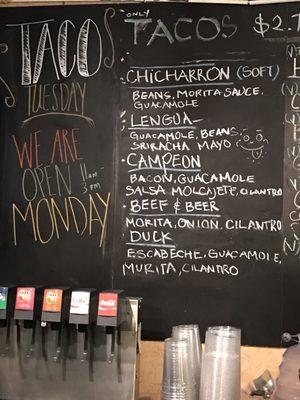 TACO
TUESDAY
WE ARE
OPEN !! 11am
3pm
MONDAY
ONLY
TACOS $2.
CHICHARRÓN (SOFT)
BEANS, MORITA SAUCE,
GUACAMOLE
LENGUA
GUACAMOLE, BEANS,
SRIRACHA MAYO
CAMPEON
BACON, GUACAMOLE
SALSA MOLCAJETE, CILANTRO
BEEF & BEER
MORITA, ONION, CILANTRO
DUCK
ESCABECHE, GUACAMOLE,
MURITA, CILANTRO